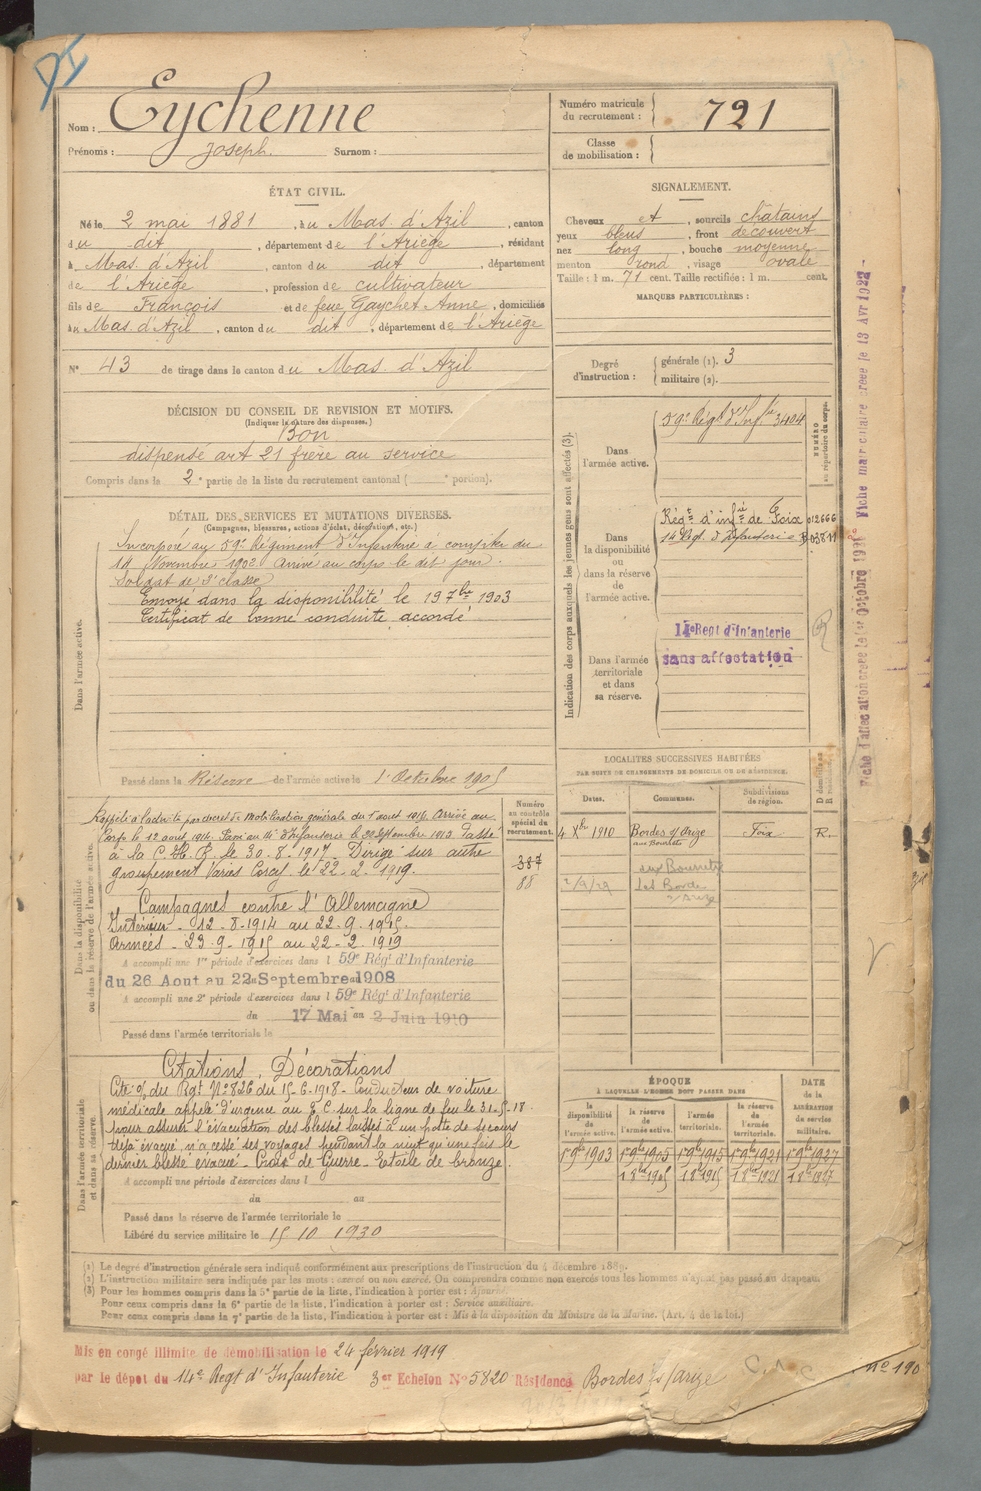 Nom : Eychenne
Prénoms : Joseph. Surnom :
Numéro matricule du recrutement : 721
Classe de mobilisation :
ÉTAT CIVIL.
Né le 2 mai 1881, à u Mas. d'Azil, canton
du dit, département de l'Ariège, résidant
à Mas. d'Azil, canton du dit, département
de l'Ariège, profession de cultivateur
fils de François et de feue Gaychet Anne, domiciliés
à u Mas. d'Azil, canton du dit, département de l'Ariège
N° 43 de tirage dans le canton du Mas. d'Azil
SIGNALEMENT.
Cheveux et, sourcils châtains
yeux bleus, front découvert
nez long, bouche moyenne
menton rond, visage ovale
Taille : 1 m. 71 cent. Taille rectifiée : 1 m. cent.
MARQUES PARTICULIÈRES :
Degré d'instruction : générale (1). 3
militaire (2).
DÉCISION DU CONSEIL DE REVISION ET MOTIFS.
(Indiquer la nature des dispenses.)
Bon
dispensé art 21 frère au service
Compris dans la 2e partie de la liste du recrutement cantonal ( e portion).
DÉTAIL DES SERVICES ET MUTATIONS DIVERSES.
(Campagnes, blessures, actions d'éclat, décorations, etc.)
Dans l'armée active.
Incorporé au 59e Régiment d'Infanterie à compter du
Novembre 1902. Arrivé au corps le dit jour.
Soldat de 2e classe
Envoyé dans la disponibilité le 19 7bre 1903
Certificat de bonne conduite accordé
Passé dans la Réserve de l'armée active le 1 Octobre 1905
Indication des corps auxquels les jeunes gens sont affectés (3).
NUMÉRO au répertoire du corps.
Dans l'armée active.
59e Régt d'Inf.ie 3404
Dans la disponibilité ou dans la réserve de l'armée active.
Régt d'infie de Foix 012666
14 Régt d'Infanterie
Dans l'armée territoriale et dans sa réserve.
14e Regt d'Infanterie
sans affectation
Fiche d'affectation créée le 1er Octobre Fiche matriculaire créée le 13 Avr 1922
LOCALITÉS SUCCESSIVES HABITÉES
PAR SUITE DE CHANGEMENTS DE DOMICILE OU DE RÉSIDENCE.
Dates. Communes. Subdivisions de région. D domicile ou R résidence.
4 Xbre 1910 Bordes s/ Arize Foix R.
aux Bourrets
Les Bordes
s/ Arize
Dans la disponibilité ou dans la réserve de l'armée active.
Numéro au contrôle spécial du recrutement.
387
88
Rappelé à l'activité par décret de Mobilisation générale du 1 août 1914. Arrivé au
Corps le 12 août 1914. Passé au 14e d'Infanterie le Septembre 1915. Passé
à la C. H. R. le 30-8-1917. Dirigé sur autre
groupement le 22-2-1919.
Campagnes contre l'Allemagne
Intérieur - 12-8-1914 au 22-9-1915.
Armées - 23-9-1915 au 22-2-1919
A accompli une 1re période d'exercices dans l 59e Régt d'Infanterie
du 26 Aout au 22 Septembre 1908
A accompli une 2e période d'exercices dans l 59e Régt d'Infanterie
du 17 Mai au 2 Juin 1910
Passé dans l'armée territoriale le
Dans l'armée territoriale et dans sa réserve.
Citations, Décorations
Cité O/ du Rgt N° 826 du 15-6-1918 - Conducteur de voiture
médicale appelé d'urgence au sur la ligne de feu le 31-5-18
pour assurer l'évacuation des blessés laissés à un poste de secours
déjà évacué, n'a cessé ses voyages pendant la nuit qu'une fois le
dernier blessé évacué - Croix de Guerre - Etoile de bronze.
A accompli une période d'exercices dans l
du au
Passé dans la réserve de l'armée territoriale le
Libéré du service militaire le 15 10 1930
ÉPOQUE
À LAQUELLE L'HOMME DOIT PASSER DANS
la disponibilité de l'armée active. la réserve de l'armée active. l'armée territoriale. la réserve de l'armée territoriale. DATE DE LA LIBÉRATION du service militaire.
1903 1905 1915 1921 1927
1905 1915 1921 1927
(1) Le degré d'instruction générale sera indiqué conformément aux prescriptions de l'instruction du 4 décembre 1889.
(2) L'instruction militaire sera indiquée par les mots : exercé ou non exercé. On comprendra comme non exercés tous les hommes n'ayant pas passé au drapeau.
(3) Pour les hommes compris dans la 5e partie de la liste, l'indication à porter est : Ajourné.
Pour ceux compris dans la 6e partie de la liste, l'indication à porter est : Service auxiliaire.
Pour ceux compris dans la 7e partie de la liste, l'indication à porter est : Mis à la disposition du Ministre de la Marine. (Art. 4 de la loi.)
Mis en congé illimité de démobilisation le 24 février 1919
par le dépot du 14e Regt d'Infanterie 3er Echelon N° 5820 Résidence Bordes s/ Arize